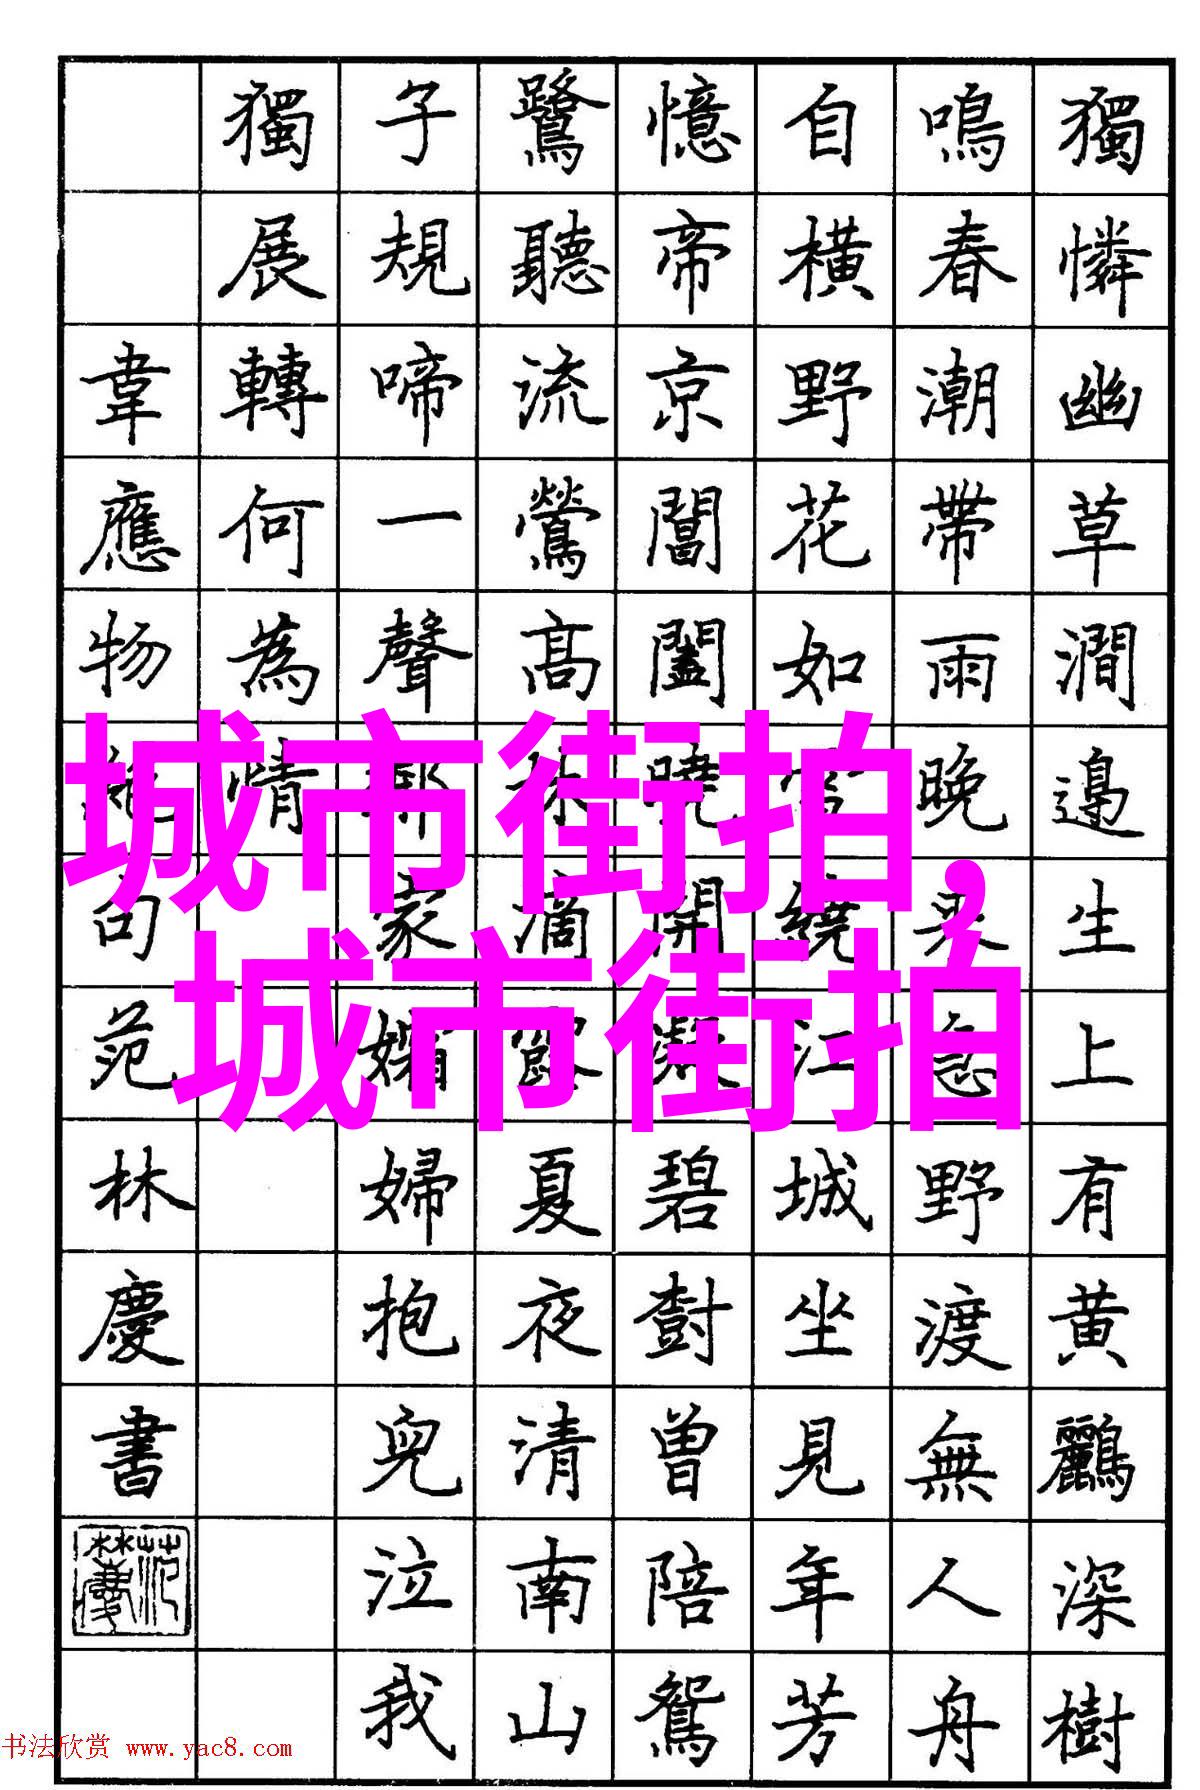 獨憐幽草澗邊生上有黄鸝深樹
鳴春潮帶雨晚來急野渡無人舟
自橫野花如雪繞江城坐見年芳
憶帝京閶闔曉開凝碧樹曾陪鴛
鷺聽流鶯高林滴露夏夜清南山
子規啼一聲鄰家孀婦抱兒泣我
獨展轉何為情
韋應物絕句范林慶書
城市街拍,
城市街拍
书法欣赏 www.yac8.com